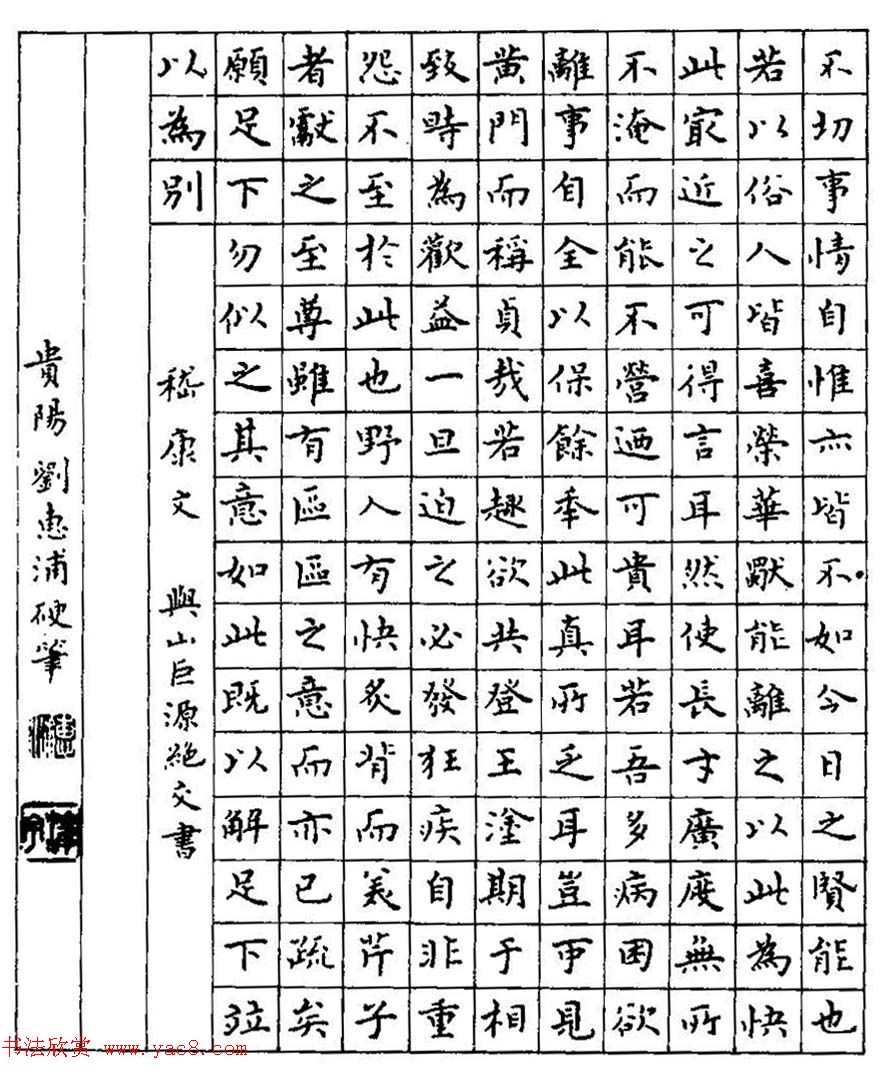 不切事情自惟亦皆不如今日之賢能也
若以俗人皆喜榮華獨能離之以此為快
此最近之可得言耳然使長才廣度無所
不淹而能不營迺可貴耳若吾多病困欲
離事自全以保餘年此真所乏耳豈可見
黃門而稱貞哉若趣欲共登王塗期于相
致時為歡益一旦迫之必發狂疾自非重
怨不至於此也野人有快炙背而美芹子
者獻之至尊雖有區區之意而亦已疏矣
願足下勿似之其意如此既以解足下竝
以為別
嵇康文 與山巨源絕交書
貴陽劉惠浦硬筆
书法欣赏 www.yac8.com